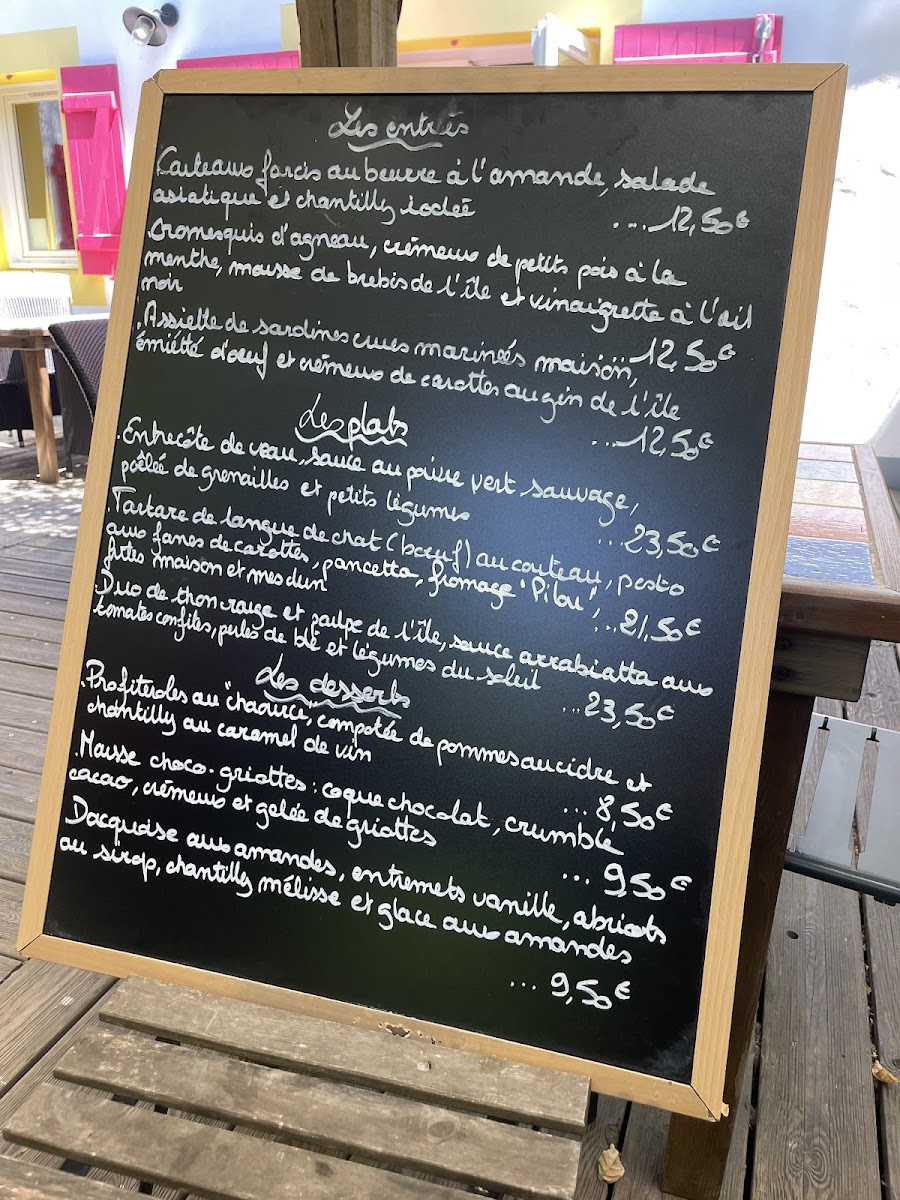 Les entrées
.Couteaux farcis au beurre à l'amande, salade
asiatique et chantilly iodée
... 12,50€
.Cromesquis d'agneau, crémeux de petits pois à la
menthe, mousse de brebis de l'île et vinaigrette à l'ail
noir
12,50€
.Assiette de sardines crues marinées maison,
émietté d'oeuf et crémeux de carottes au gin de l'île
... 12,50€
Les plats
.Entrecôte de veau, sauce au poivre vert sauvage,
poêlée de grenailles et petits légumes
... 23,50€
.Tartare de langue de chat (boeuf) au couteau, pesto
aux fanes de carottes, pancetta, fromage "Pilou",
frites maison et mesclun
... 21,50€
.Duo de thon rouge et poulpe de l'île, sauce arrabiatta aux
tomates confites, perles de blé et légumes du soleil
... 23,50€
Les desserts
.Profiteroles au "chaource", compotée de pommes au cidre et
chantilly au caramel de vin
... 8,50€
.Mousse choco-griottes : coque chocolat, crumble
cacao, crémeux et gelée de griottes
... 9,50€
Dacquoise aux amandes, entremets vanille, abricots
au sirop, chantilly mélisse et glace aux amandes
... 9,50€